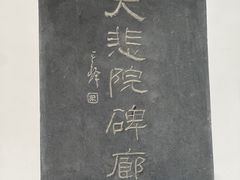 大悲院碑廊